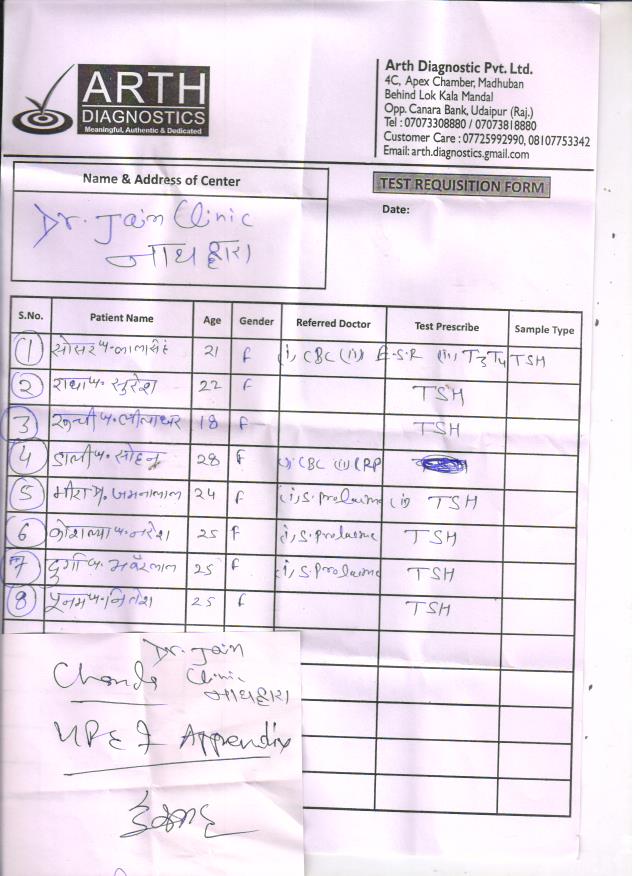 ARTH
DIAGNOSTICS
Meaningful, Authentic & Dedicated
Arth Diagnostic Pvt. Ltd.
4C, Apex Chamber, Madhuban
Behind Lok Kala Mandal
Opp. Canara Bank, Udaipur (Raj.)
Tel : 07073308880 / 07073818880
Customer Care : 07725992990, 08107753342
Email: arth.diagnostics.gmail.com
Name & Address of Center
Dr. Jain Clinic
नाथद्वारा
TEST REQUISITION FORM
Date:
S.No. Patient Name Age Gender Referred Doctor Test Prescribe Sample Type
1 21 F (i) CBC (ii) E.S.R (iii) T3 T4 TSH
2 राधा प. सुरेश 22 F TSH
3 प. लीलाधर 18 F TSH
4 डाली प. सोहन 28 F (i) CBC (ii) CRP
5 मीरा प. जमनालाल 24 F (i) S. (ii) TSH
6 कोशल्या प. नरेश 25 F (i) S. TSH
7 दुर्गा प. भंवरलाल 25 F (i) S. TSH
8 पुनम प. नितेश 25 F TSH
Dr. Jain
Clinic
नाथद्वारा
Appendix